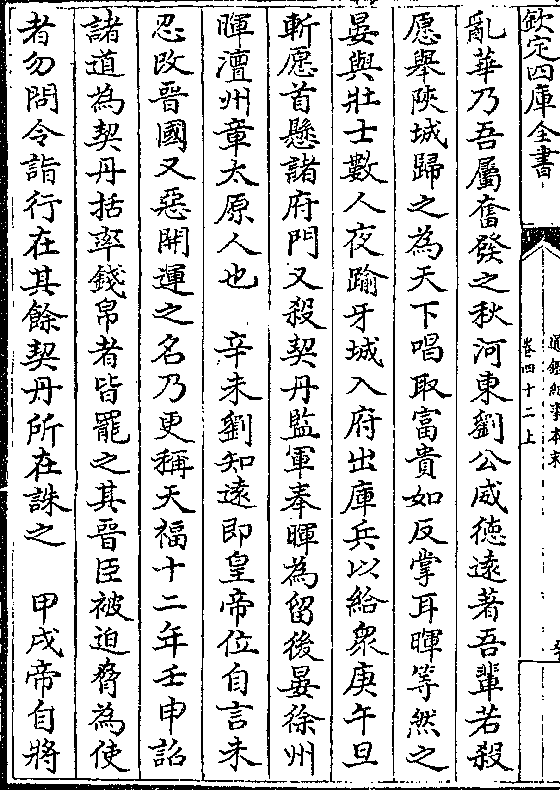 欽定四庫全書
通鑑紀事本末
卷四十二上
亂華乃吾屬奮發之秋河東劉公威徳遠著吾輩若殺
愿舉陜城歸之為天下唱取富貴如反掌耳暉等然之
晏與壯士數人夜踰牙城入府出庫兵以給衆庚午旦
斬愿首懸諸府門又殺契丹監軍奉暉為留後晏徐州
暉澶州章太原人也　辛未劉知遠即皇帝位自言未
忍改晉國又惡開運之名乃更稱天福十二年壬申詔
諸道為契丹括率錢帛者皆罷之其晉臣被迫脅為使
者勿問令詣行在其餘契丹所在誅之　甲戌帝自將